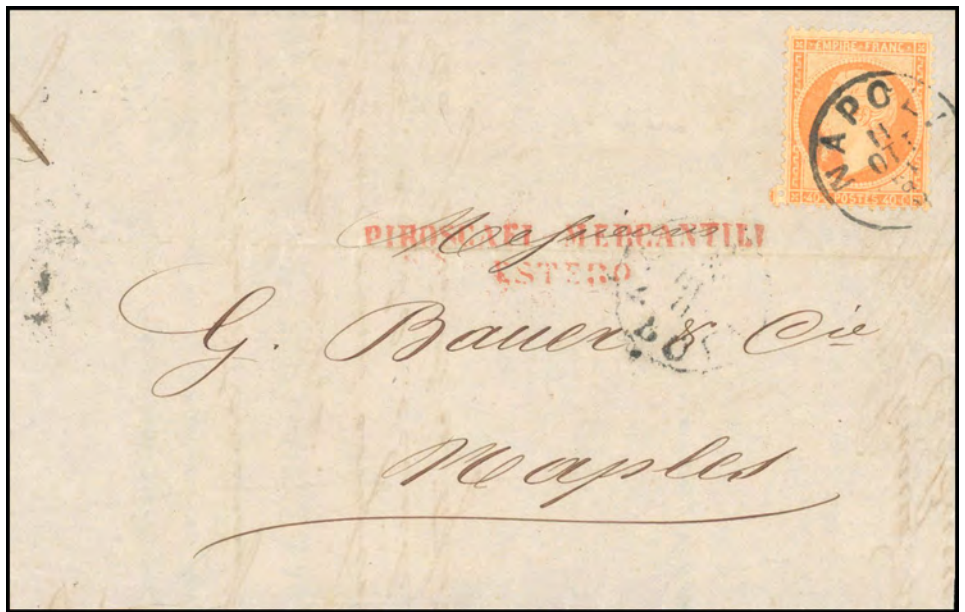 EMPIRE FRANC
NAPO
11
OTT
40 C POSTES 40 C
Messieurs
PIROSCAFI MERCANTILI
ESTERO
G. Bauer & Cie
Naples